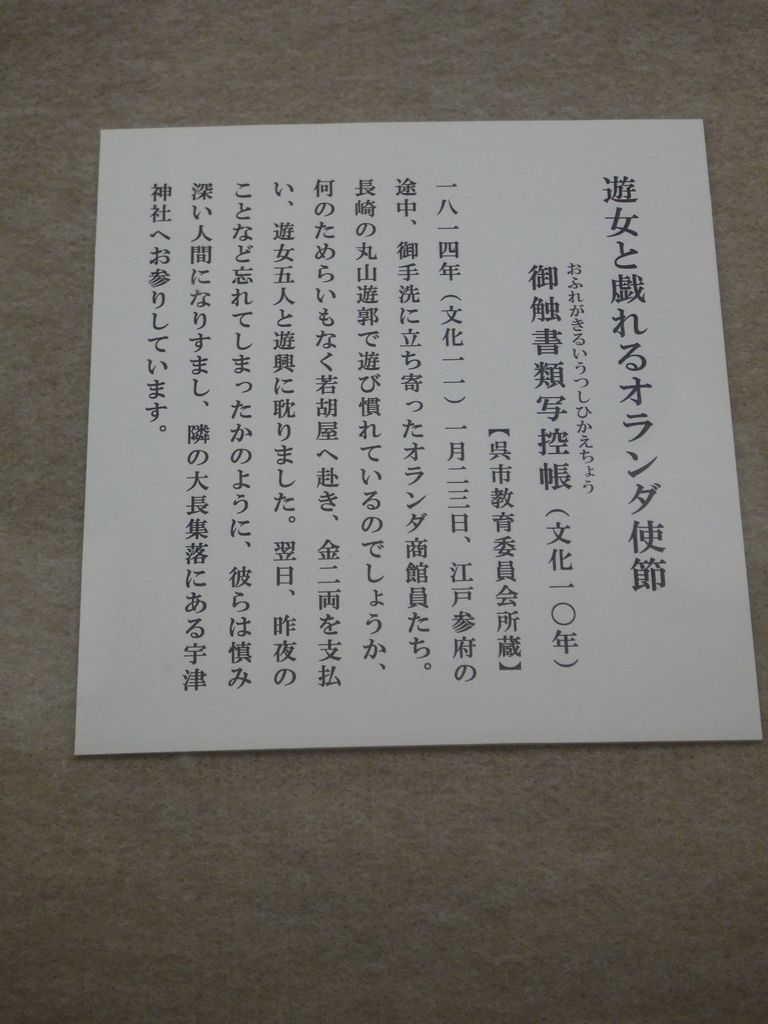 遊女と戯れるオランダ使節
おふれがきるいうつしひかえちょう
御触書類写控帳（文化一〇年）
【呉市教育委員会所蔵】
一八一四年（文化一一）一月二三日、江戸参府の
途中、御手洗に立ち寄ったオランダ商館員たち。
長崎の丸山遊郭で遊び慣れているのでしょうか、
何のためらいもなく若胡屋へ赴き、金二両を支払
い、遊女五人と遊興に耽りました。翌日、昨夜の
ことなど忘れてしまったかのように、彼らは慎み
深い人間になりすまし、隣の大長集落にある宇津
神社へお参りしています。